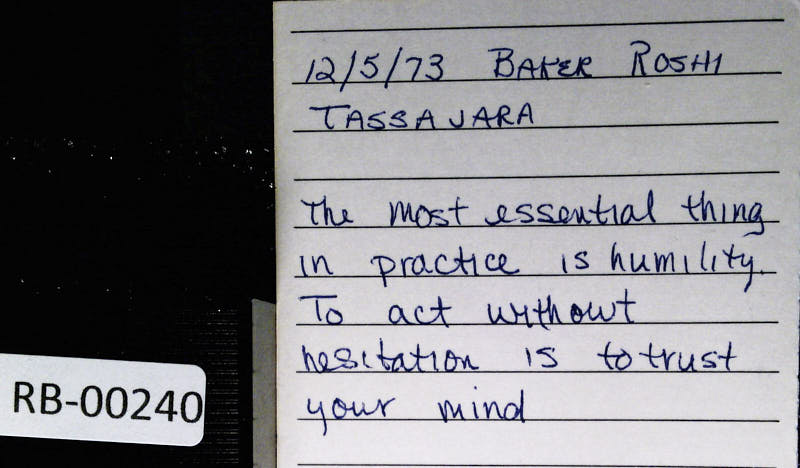 12/5/73 BAKER ROSHI
TASSAJARA
The most essential thing
in practice is humility.
To act without
hesitation is to trust
your mind
RB-00240